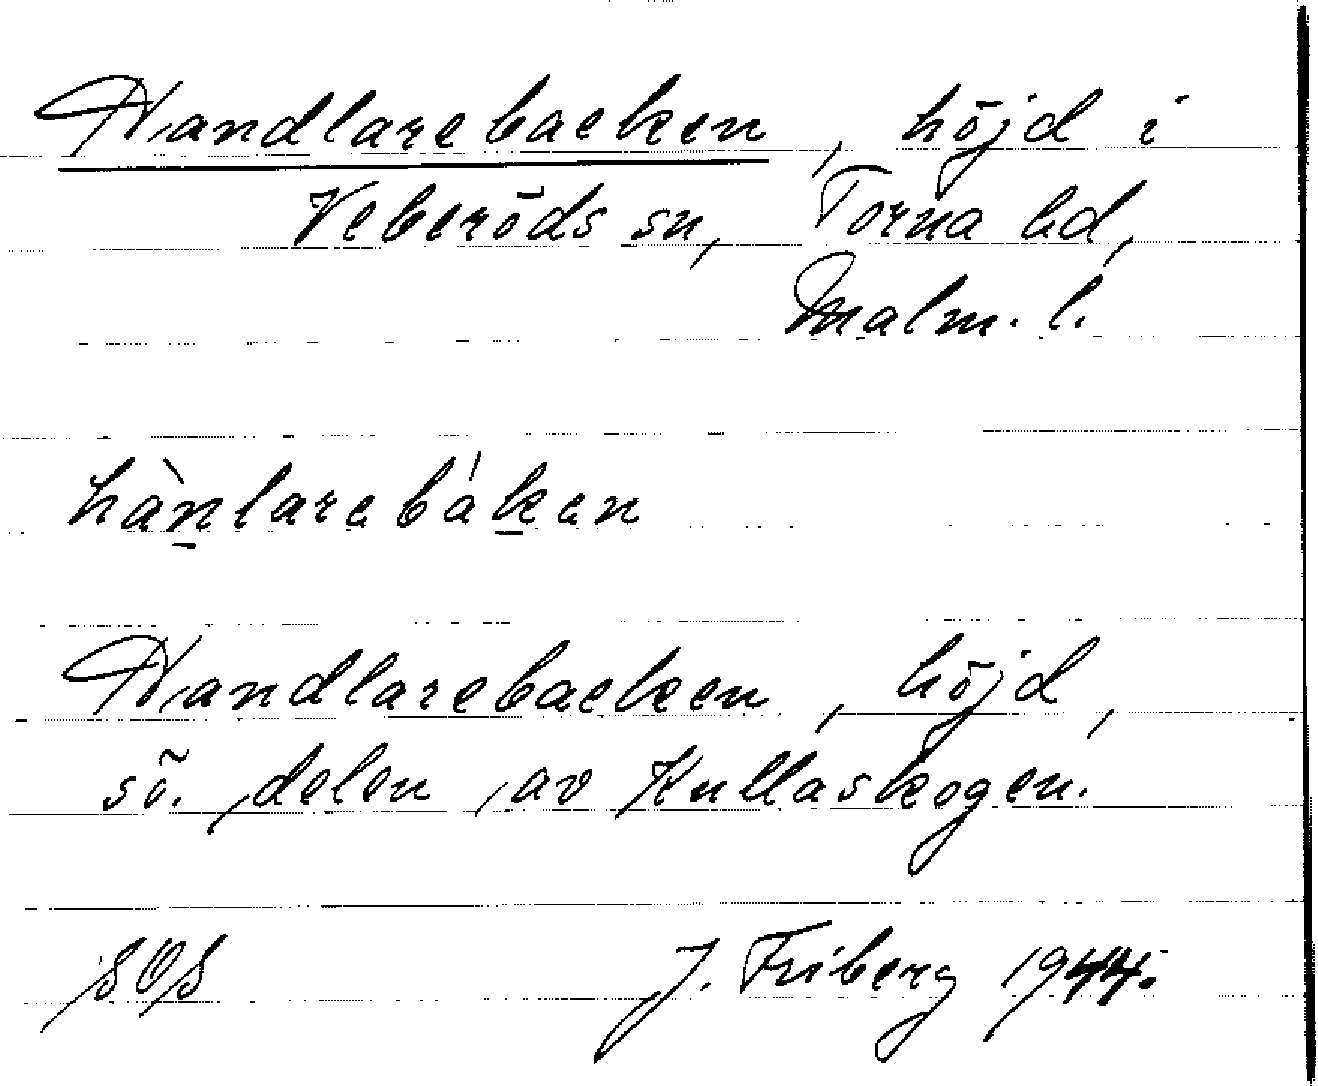 Handlarebacken, höjd i
Veberöds sn, Torna hd,
Malm. l.
hànlarebáken
Handlarebacken, höjd,
sö. delen av Kullaskogen.
SOS J. Friberg 1944.